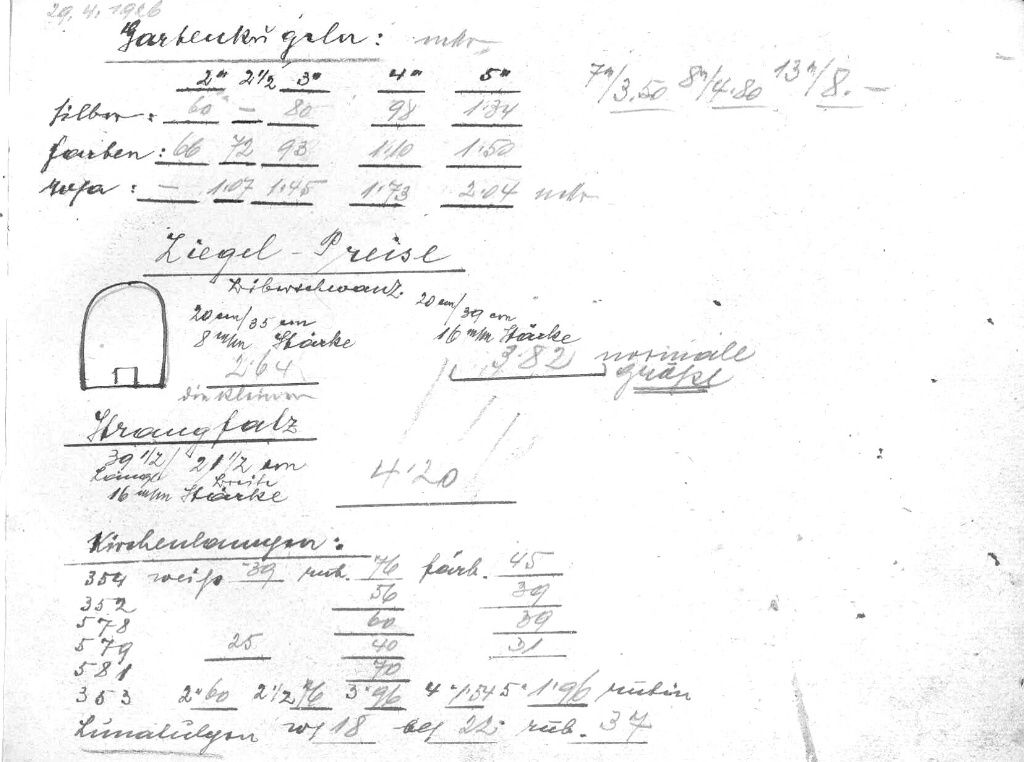 29.4.1926
Gartenkugeln:
2" 2 1/2 3" 4" 5"
7"/3.50 8"/4.80 13"/8.—
silber: 60 — 80 98 1·34
farben: 66 72 93 1·10 1·50
rosa: — 1·07 1·45 1·73 2·04
Ziegel-Preise
Biberschwanz.
20 cm/35 cm 20 cm/39 cm
8 m/m Stärke 16 m/m Stärke
2·64 3·82 normale Größe
die kleinen
Strangfalz
39 1/2 / 21 1/2 cm
Länge Breite
16 m/m Stärke 4·20
Kirchenlampen:
354 weiß 39 rub. 76 färb. 45
352 56 39
578 60 39
579 25 40 31
581 70
353 2" 60 2 1/2 76 3" 96 4" 1·54 5" 1·96 rubin
18 22 rub. 37